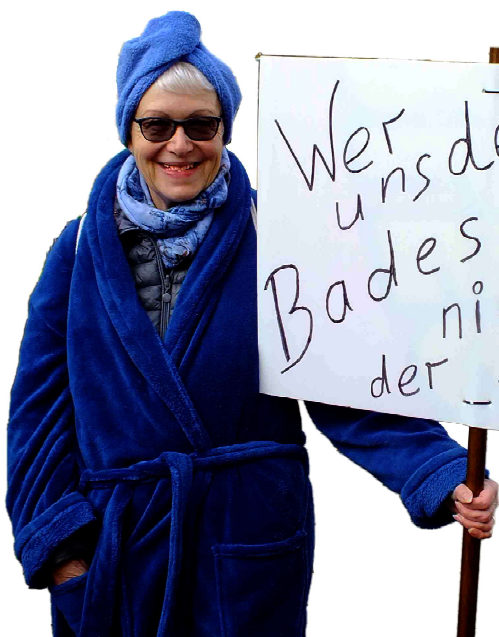 Wer
uns de
Bades
ni
der _